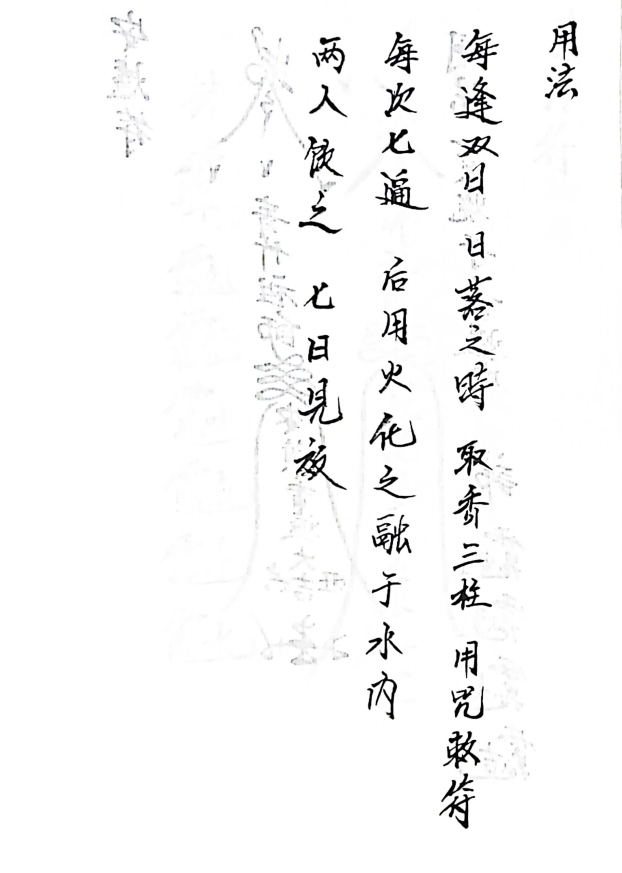 用法
每逢双日 日落之時 取香三柱 用咒敕符
每次七遍 后用火化之融于水内
两人饮之 七日見效